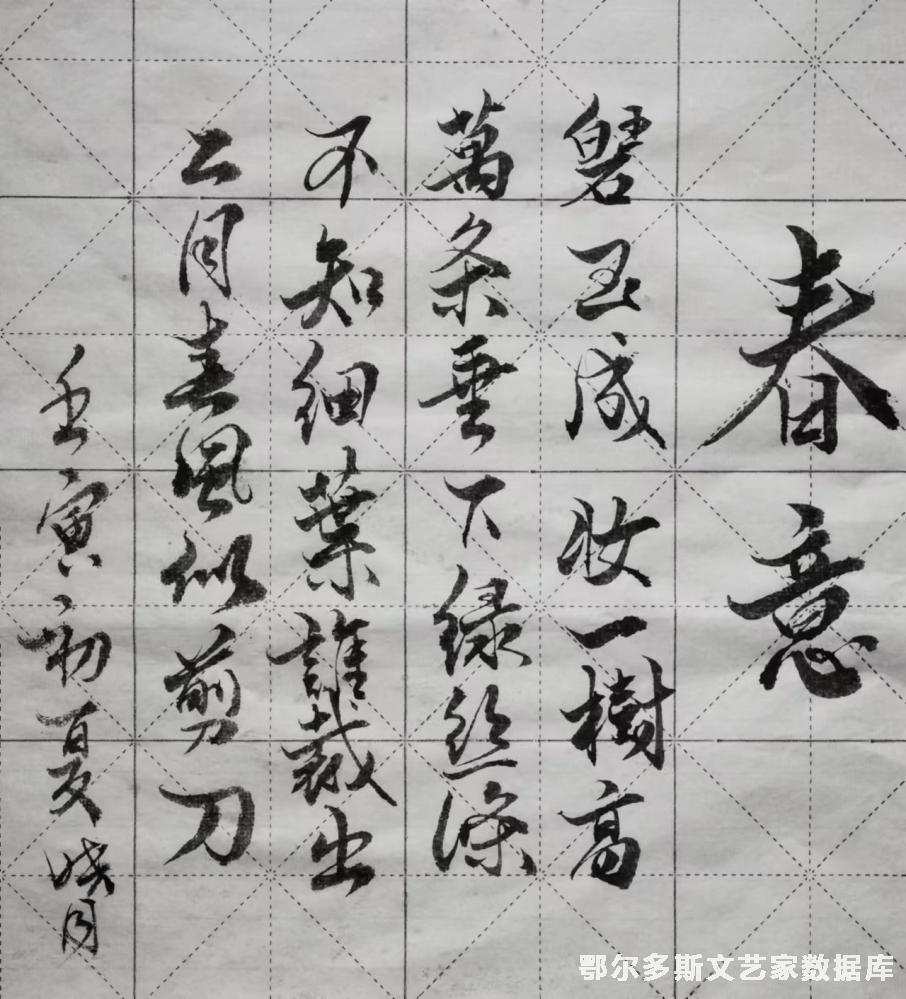 春意
碧玉成妆一樹高
萬条垂下绿丝绦
不知细葉誰裁出
二月春風似剪刀
壬寅初夏晓月
鄂尔多斯文艺家数据库